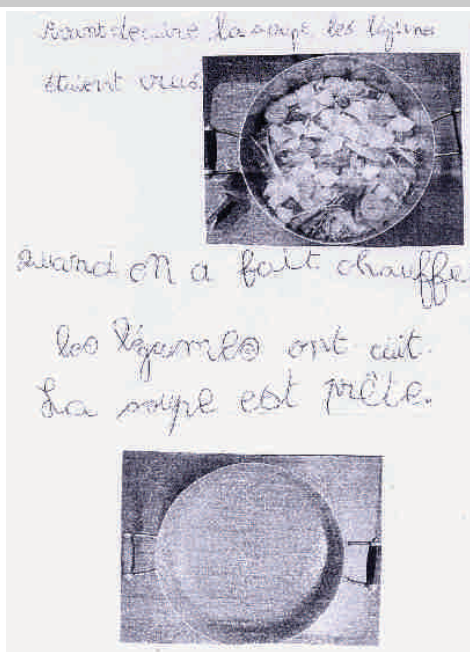 Avant de cuire la soupe les légumes
étaient crus.
quand on a fait chauffe
les légumes ont cuit.
La soupe est prête.